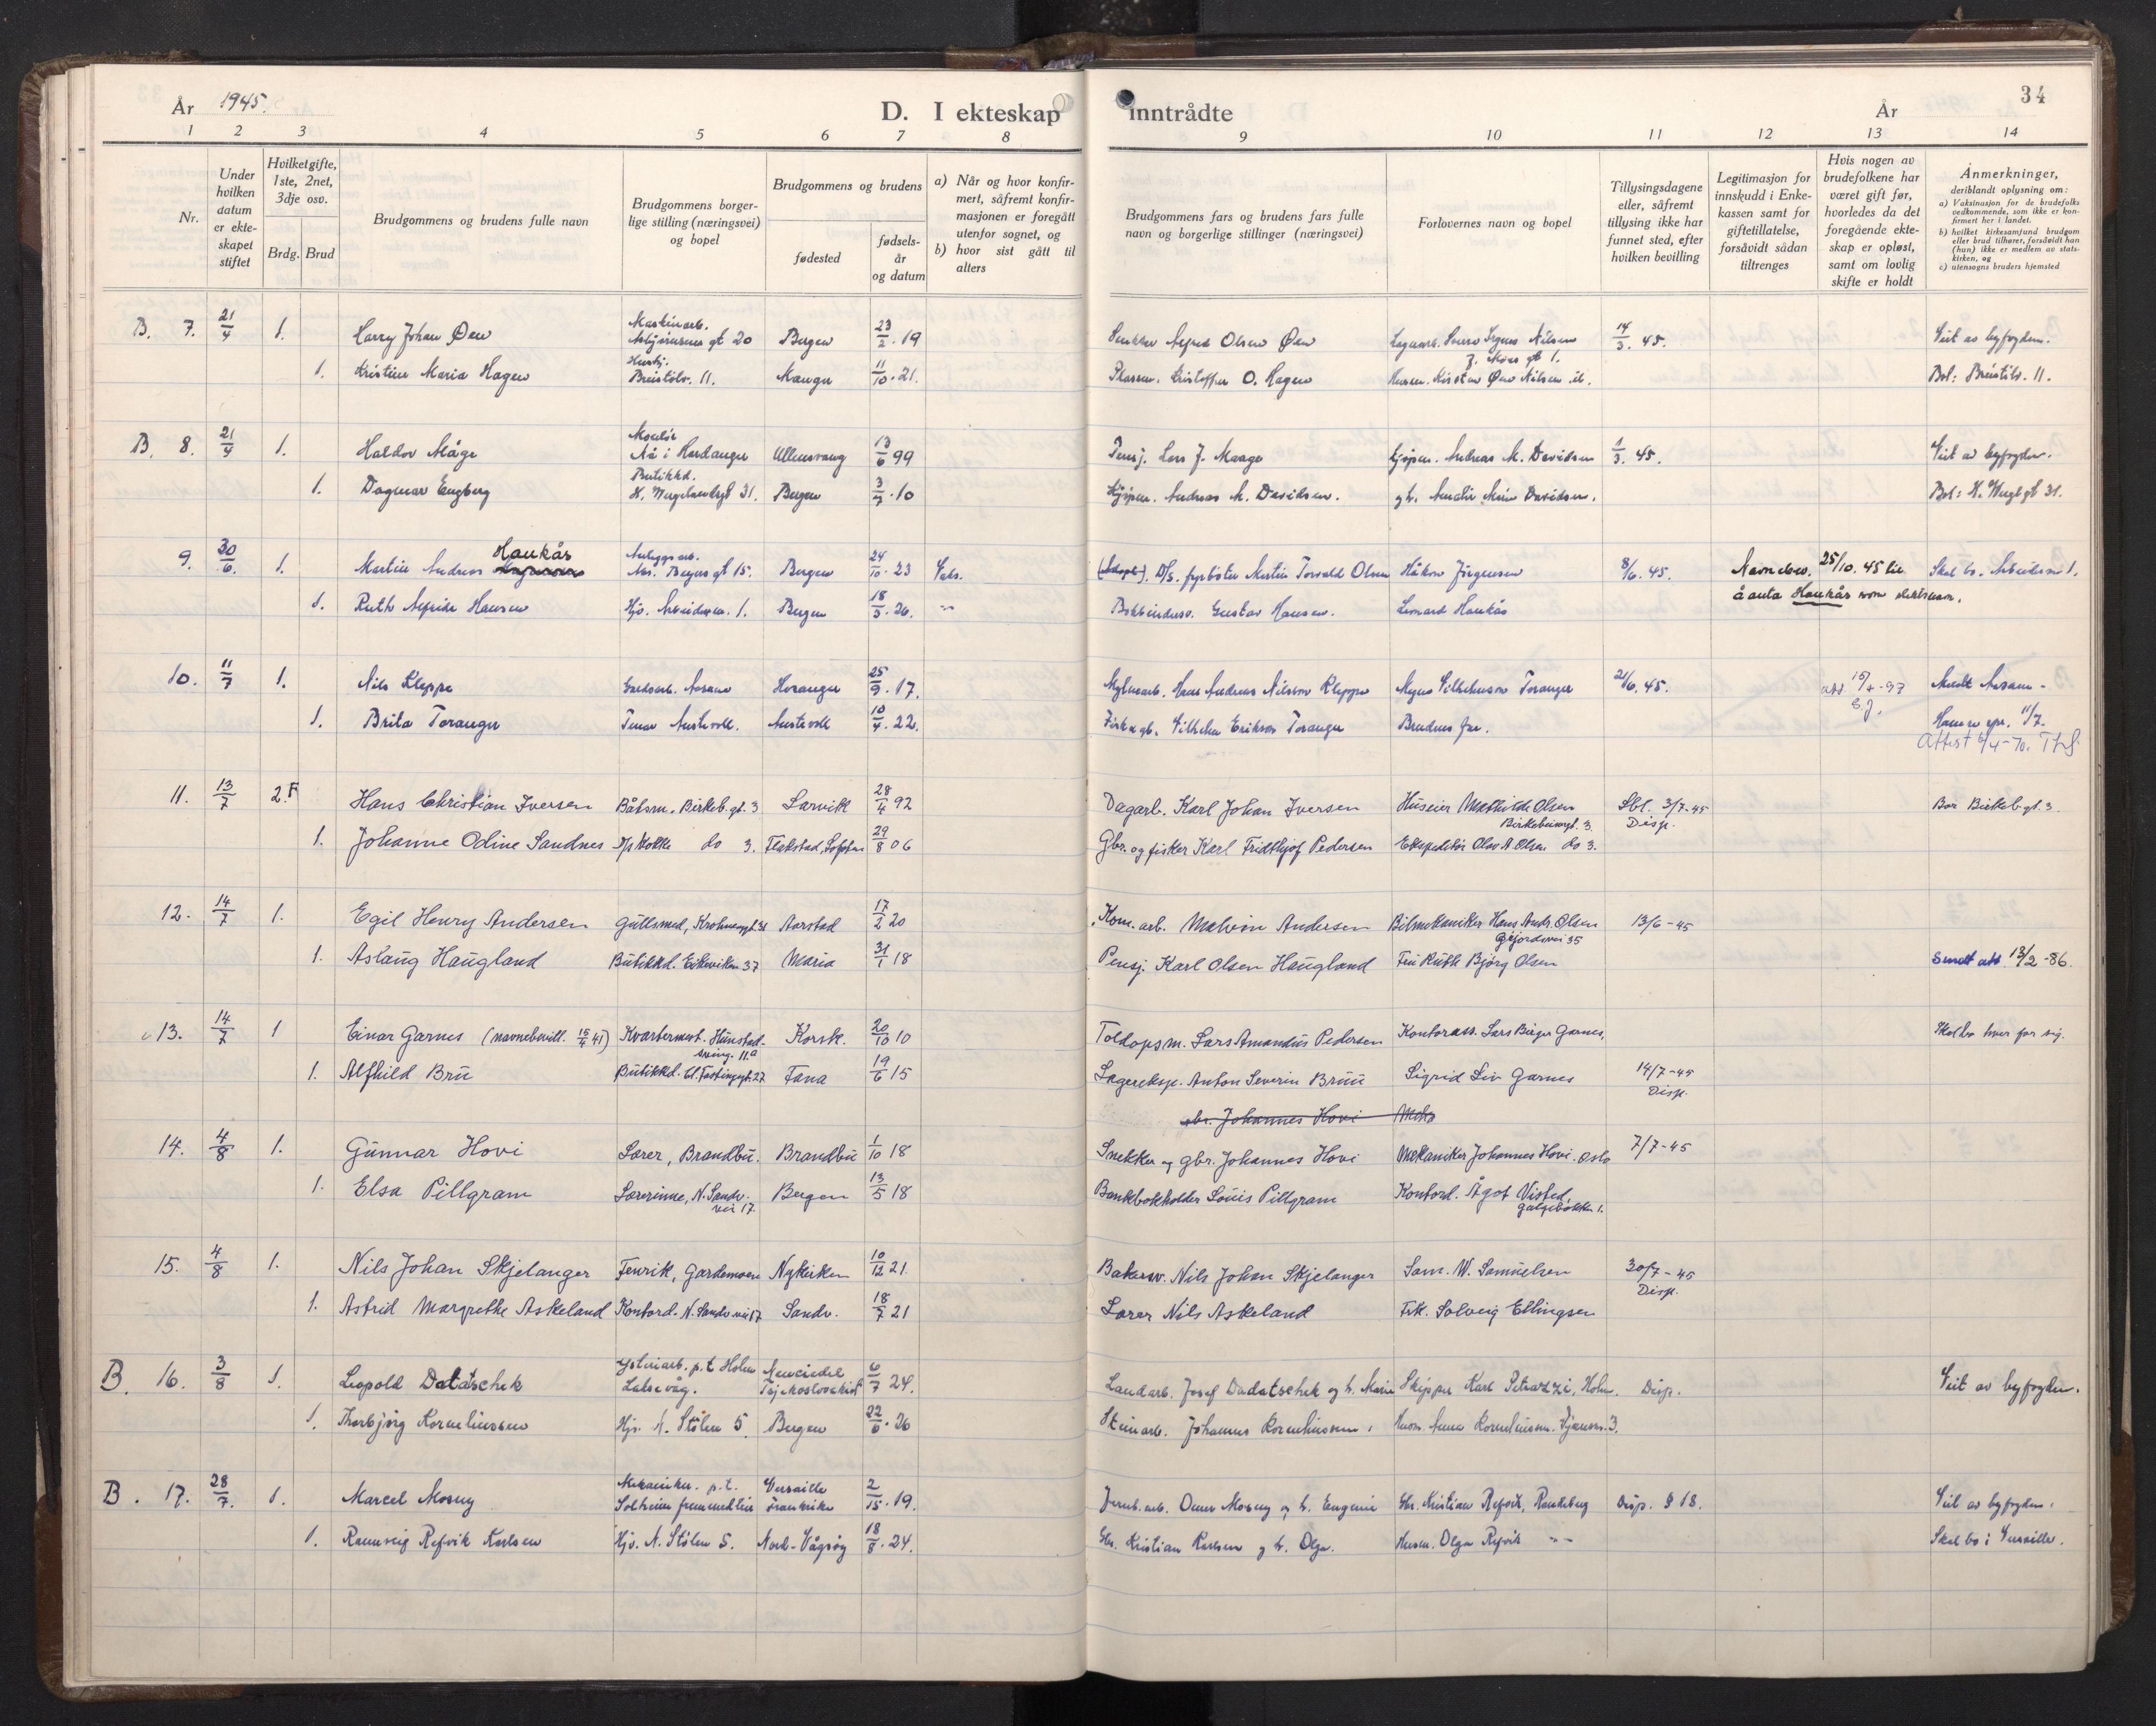 År 1945.
D. I ekteskap inntrådte
År
34
1 2 3 4 5 6 7 8 9 10 11 12 13 14
Nr.
Under hvilken datum er ekteskapet stiftet
Hvilketgifte, 1ste, 2net, 3dje osv.
Brdg. Brud
Brudgommens og brudens fulle navn
Brudgommens borgerlige stilling (næringsvei) og bopel
Brudgommens og brudens
fødested
fødselsår og datum
a) Når og hvor konfirmert, såfremt konfirmasjonen er foregått utenfor sognet, og
b) hvor sist gått til alters
Brudgommens fars og brudens fars fulle navn og borgerlige stillinger (næringsvei)
Forlovernes navn og bopel
Tillysingsdagene eller, såfremt tillysing ikke har funnet sted, efter hvilken bevilling
Legitimasjon for innskudd i Enkekassen samt for giftetillatelse, forsåvidt sådan tiltrenges
Hvis nogen av brudefolkene har været gift før, hvorledes da det foregående ekteskap er opløst, samt om lovlig skifte er holdt
Anmerkninger, deriblandt oplysning om:
a) Vaksinasjon for de brudefolks vedkommende, som ikke er konfirmert her i landet.
b) hvilket kirkesamfund brudgom eller brud tilhører, forsåvidt han (hun) ikke er medlem av statskirken, og
c) utensogns bruders hjemsted
B. 7. 21/4 1. Harry Johan Øen Maskinarb. gt 20 Bergen 23/2.19 Alfred Olsen Øen Nilsen 14/3.45. Viet av byfogden.
1. Kristine Maria Hagen Breistølv. 11. Manger 11/10.21. Kristoffer O. Hagen Kirsten Øen Nilsen Bol: Breistølv. 11.
B. 8. 21/4 1. Haldor Måge Aå i Hardanger Ullensvang 13/6 99 Pensj. Lars J. Maage Kjøpm. Andreas M. Davidsen 1/3.45. Viet av byfogden.
1. Dagmar Engberg Butikkd. H. Wergelandsgt 31. Bergen 3/7.10 Kjøpm. Andreas M. Davidsen. Davidsen. Bol: H. Wergl gt 31.
9. 30/6. 1. Martin Andreas Haukås Anleggsarb. gt 15. Bergen 24/10.23 Vaks. (Adopt.) D/S. fyrbøter Martin Torvald Olsen Håkon Jørgensen 8/6.45. Navnebev. 25/10.45 til Skal bo. Arbeiderv 1.
1. Ruth Hansen Hjv. Arbeiderv. 1. Bergen 18/5.26. -"- Bokbindersv. Gustav Hansen. Leonard Haukås å anta Haukås som slektsnavn.
10. 11/7 1. Nils Kleppe Aasane Hosanger 25/9.17. Hans Andreas Nilsson Kleppe Toranger 21/6.45. att. 15/4-97 Meldt Aasane.
1. Brita Toranger Austevoll. Austevoll 10/4.22. Vilhelm Eriksen Toranger Brudens far. 11/7. Attest 6/4-70.
11. 13/7 2.F Hans Christian Iversen Båtsm. Birkeb. gt. 3 Larvik 28/4 92 Dagarb. Karl Johan Iversen Huseier Mathilde Olsen Birkebeinergt. 3. Sbl. 3/7-45 Disp. Bor Birkeb.gt. 3.
1. Johanne Odine Sandnes do 3. Flakstad, Lofoten 29/8 06 Gbr. og fisker Karl Fridthjof Pedersen Ekspeditør Olav A. Olsen do 3.
12. 14/7 1. Egil Henry Andersen Gullsmed, Krohnengt. 31 Aarstad 17/2 20 Kom. arb. Malvin Andersen Bilmekaniker Hans Andr. Olsen Gjeordsvei 35 13/6-45
1. Aslaug Haugland Butikkd. Eikeviken 37 Maria 31/1 18 Pensj. Karl Olsen Haugland Fru Ruth Bjørg Olsen Sendt att. 13/2-86.
13. 14/7 1 Einar Garnes (navnebevill. 15/4 41) Kvartermest. Hunstadsving. 11a Korsk. 20/10 10 Toldopsm. Lars Amandus Pedersen Kontorass. Lars Birger Garnes, Skal bo hver for sig.
1. Alfhild Bru Butikkd. Cl. Fastingsgt. 27 Fana 19/6 15 Lagereksp. Anton Severin Bruu Sigrid Liv Garnes 14/7-45 Disp.
gbr. Johannes Hovi Meka
14. 4/8 1. Gunnar Hovi Lærer, Brandbu. Brandbu 1/10 18 Snekker og gbr. Johannes Hovi Mekaniker Johannes Hovi. Oslo 7/7-45
1. Elsa Pillgram Lærerinne, N. Sandv.vei 17. Bergen 13/5 18 Bankbokholder Louis Pillgram Kontord. Ågot Visted, Galgebakken 1.
15. 4/8 1. Nils Johan Skjelanger Fenrik, Gardemoen Nykirken 10/12 21. Bakersv. Nils Johan Skjelanger Sam. W. Samuelsen 30/7-45 Disp.
1. Astrid Margrethe Askeland Kontord. N. Sandv.vei 17 Sandv. 18/7 21 Lærer Nils Askeland Frk. Solveig Ellingsen
B. 16. 3/8 1. Leopold Datatschek p.t. Holen Laksevåg. Tsjekoslovakiet 6/7 24. Landarb. Josef Dadatschek og h. Marie Skipper Karl Petrazzi, Holen. Disp. Viet av byfogden.
1. Thorbjørg Korneliussen Hjv. N. Stølen 5. Bergen 22/6.26 Steinarb. Johannes Korneliussen, Anna Korneliussen.
B. 17. 28/7. 1. Marcel Mosny Mekaniker. p.t. Solheim Versaille Frankrike 2/15.19. Omer Mosny og h. Eugenie Gbr. Kristian Refvik, Disp. § 18. Viet av byfogden.
1. Rannveig Refvik Karlsen Hjv. N. Stølen 5. Nord-Vågsøy 18/8.24. Gbr. Kristian Karlsen og h. Olga. Olga Refvik -"- Skal bo i Versailles.